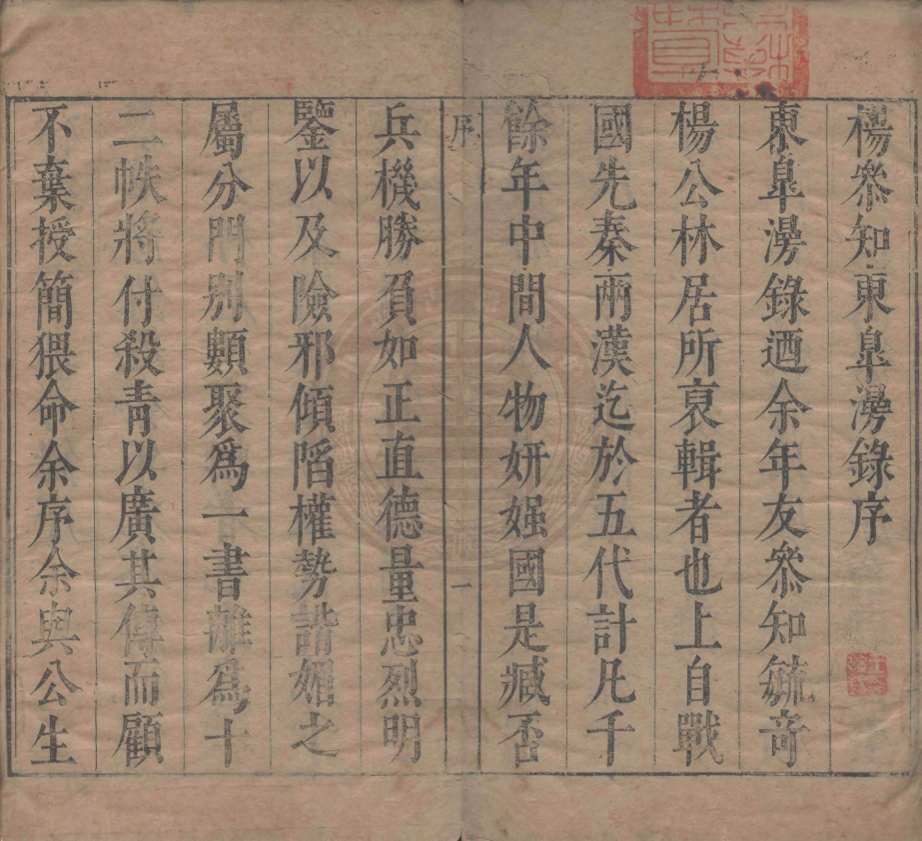 楊叅知東皐漫錄序
東皐漫錄迺余年友叅知毓奇
楊公林居所裒輯者也上自戰
國先秦兩漢迄於五代計凡千
餘年中間人物妍媸國是臧否
序
一
兵機勝負如正直德量忠烈明
鑒以及險邪傾陷權勢諂媚之
屬分門別類聚爲一書離爲十
二帙將付殺青以廣其傳而顧
不棄授簡猥命余序余與公生